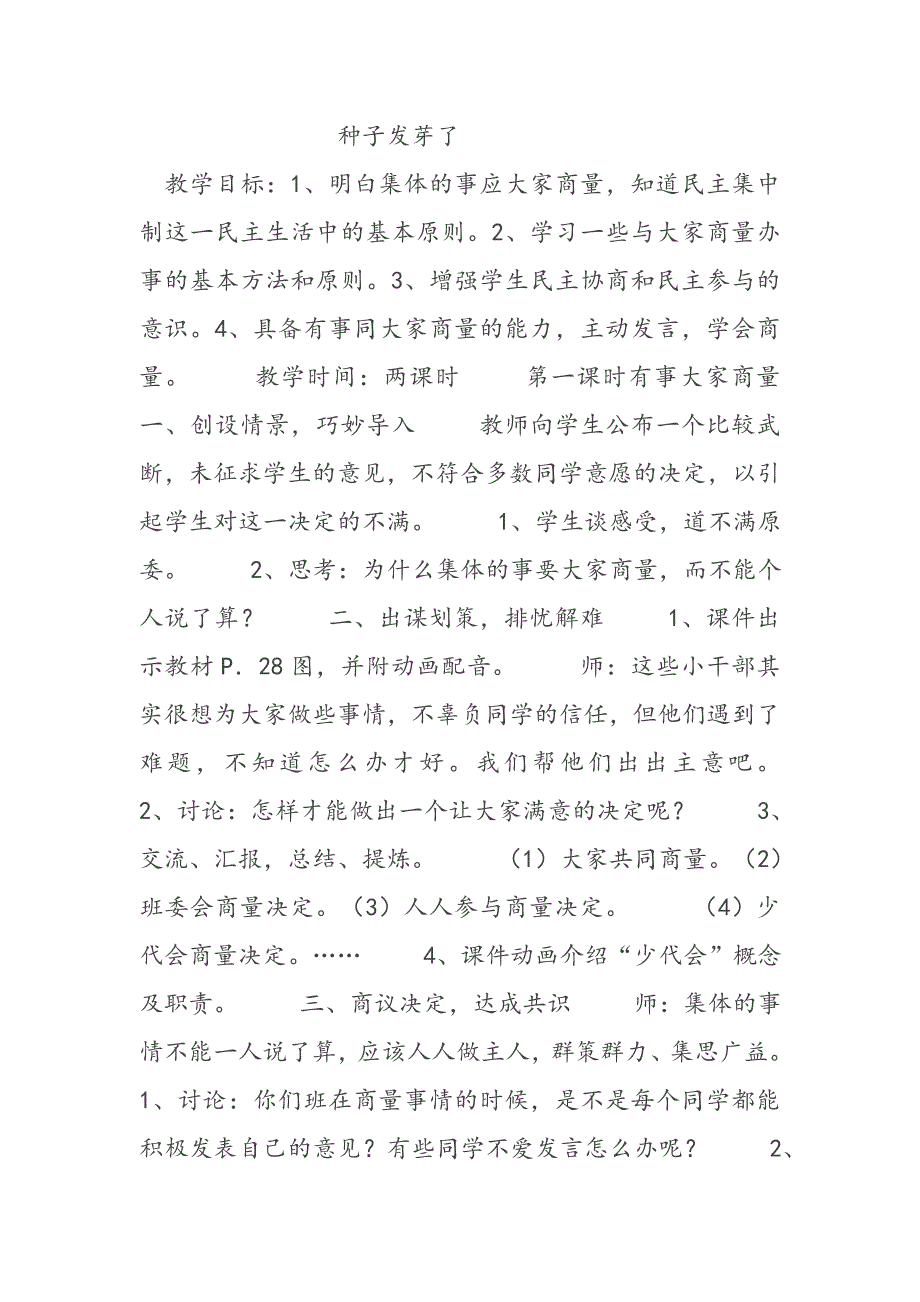 种子发芽了
教学目标：1、明白集体的事应大家商量，知道民主集中
制这一民主生活中的基本原则。2、学习一些与大家商量办
事的基本方法和原则。3、增强学生民主协商和民主参与的
意识。4、具备有事同大家商量的能力，主动发言，学会商
量。 教学时间：两课时 第一课时有事大家商量
一、创设情景，巧妙导入 教师向学生公布一个比较武
断，未征求学生的意见，不符合多数同学意愿的决定，以引
起学生对这一决定的不满。 1、学生谈感受，道不满原
委。 2、思考：为什么集体的事要大家商量，而不能个
人说了算？ 二、出谋划策，排忧解难 1、课件出
示教材 P．28 图，并附动画配音。 师：这些小干部其
实很想为大家做些事情，不辜负同学的信任，但他们遇到了
难题，不知道怎么办才好。我们帮他们出出主意吧。
2、讨论：怎样才能做出一个让大家满意的决定呢？ 3、
交流、汇报，总结、提炼。 （1）大家共同商量。（2）
班委会商量决定。（3）人人参与商量决定。 （4）少
代会商量决定。…… 4、课件动画介绍“少代会”概念
及职责。 三、商议决定，达成共识 师：集体的事
情不能一人说了算，应该人人做主人，群策群力、集思广益。
1、讨论：你们班在商量事情的时候，是不是每个同学都能
积极发表自己的意见？有些同学不爱发言怎么办呢？ 2、